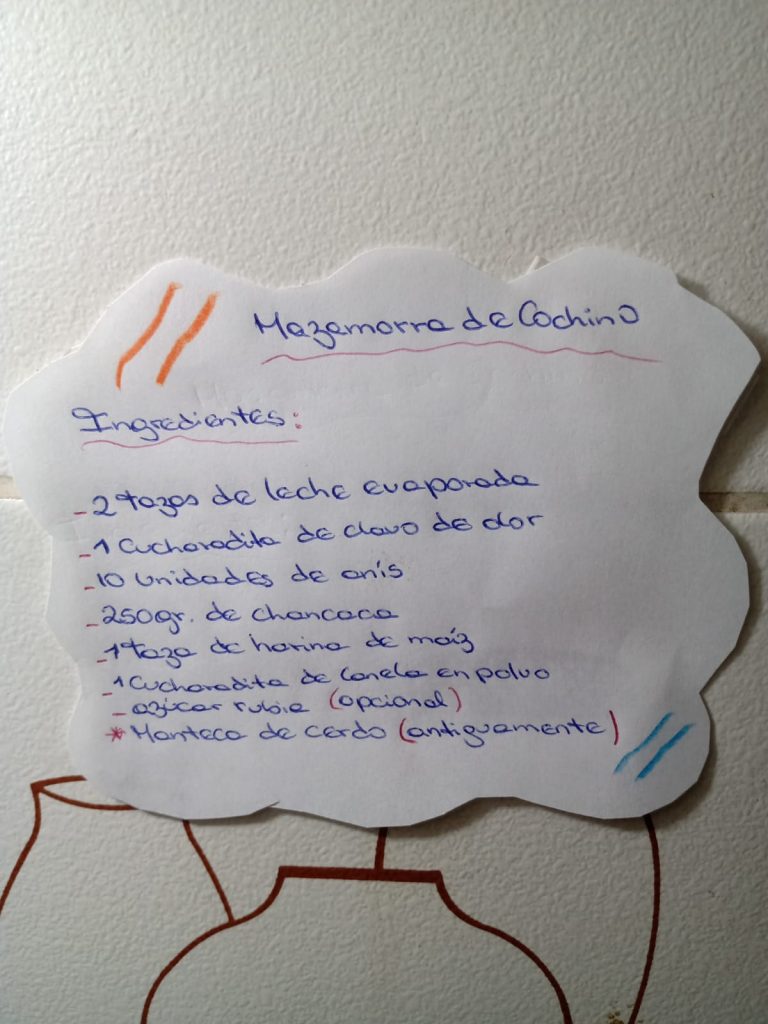 Mazamorra de Cochino
Ingredientes:
- 2 tazas de leche evaporada
- 1 Cucharadita de clavo de olor
- 10 Unidades de anís
- 250gr. de chancaca
- 1 taza de harina de maíz
- 1 Cucharadita de Canela en polvo
- azúcar rubia (opcional)
* Manteca de cerdo (antiguamente)